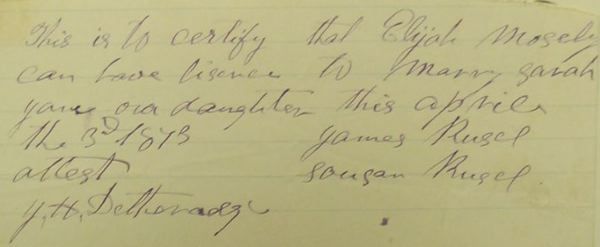 This is to certify that Elijah Mosely
can have lisence to marry sarah
yane our daughter this aprile
the 3rd 1873
yames Rusel
attest
sousan Rusel
y. H. Detheradge